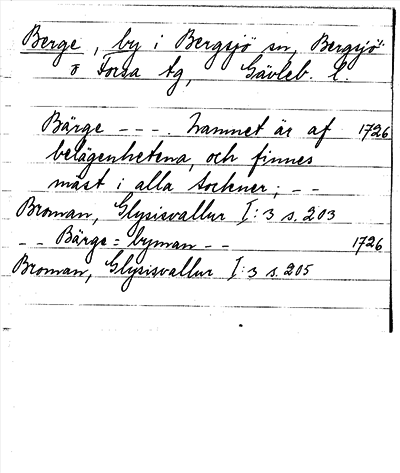 Berge, by i Bergsjö sn, Bergsjö
o Forsa tg, Gävleb. l.
Bärge - - - . Namnet är af 1726
belägenhetena, och finnes
mäst i alla sockner; - -
Broman, Glysisvallur I:3 s. 203
- - Bärge = byman - - 1726
Broman, Glysisvallur I:3 s. 205